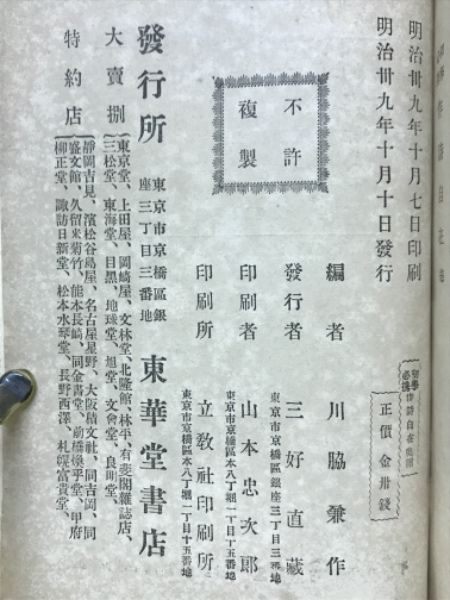 明治卅九年十月七日印刷
明治卅九年十月十日發行
正價金卅錢
不許
複製
編者 川脇兼作
東京市京橋區銀座三丁目三番地
發行者 三好直藏
東京市京橋區本八丁堀一丁目十五番地
印刷者 山本忠次郎
東京市京橋區本八丁堀一丁目十五番地
印刷所 立敎社印刷所
發行所 東京市京橋區銀
座三丁目三番地 東華堂書店
大賣捌 東京堂、上田屋、岡崎屋、文林堂、北隆館、林平、有斐閣雜誌店、
三松堂、東海堂、目黑、地球堂、旭堂、文會堂、良明堂、
特約店 靜岡吉見、濱松谷島屋、名古屋星野、大阪積文社、同吉岡、同
盛文館、久留米菊竹、熊本長崎、同金書堂、前橋煥乎堂、甲府
柳正堂、諏訪日新堂、松本水琴堂、長野西澤、札幌富貴堂、